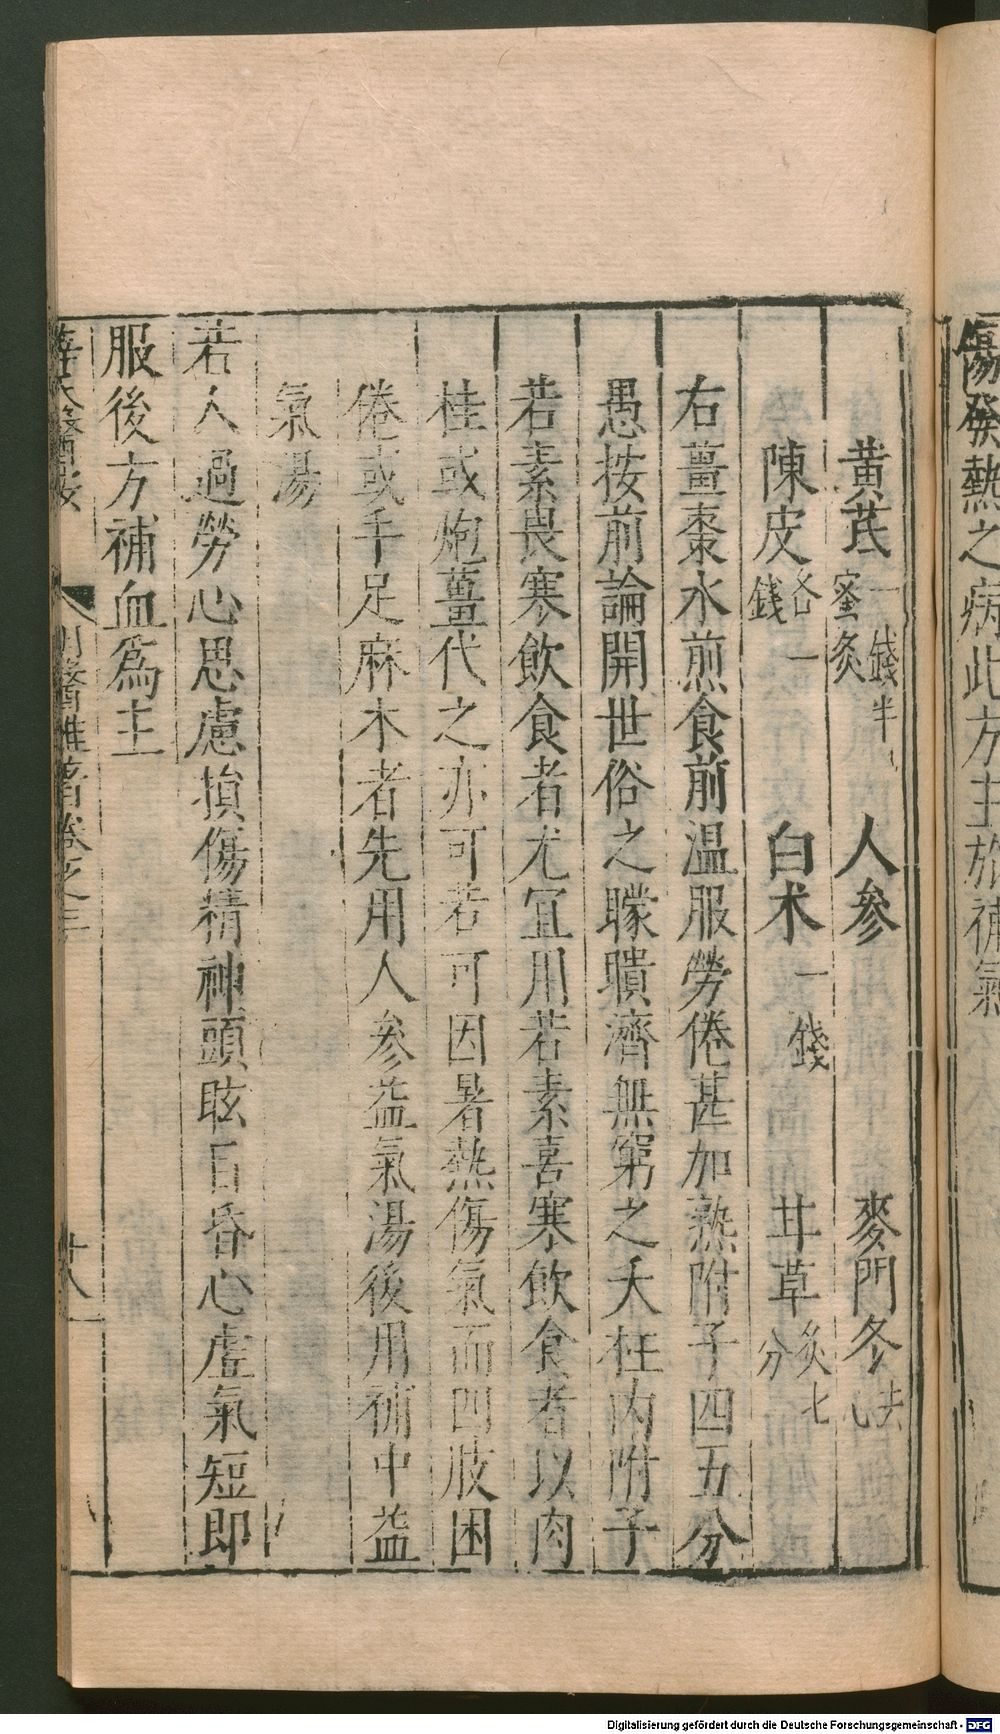 傷發熱之病此方主於補氣
黃芪一錢半蜜炙 人參 麥門冬去心
陳皮各一錢 白术一錢 甘草炙七分
右薑棗水煎食前溫服勞倦甚加熟附子四五分
愚按前論開世俗之矇聵濟無窮之夭枉內附子
若素畏寒飲食者尤宜用若素喜寒飲食者以肉
桂或炮薑代之亦可若可因暑熱傷氣而四肢困
倦或手足麻木者先用人參益氣湯後用補中益
氣湯
若人過勞心思慮損傷精神頭眩目昏心虛氣短即
服後方補血為主
薛氏醫按 明醫雜著卷之三 十八
Digitalisierung gefördert durch die Deutsche Forschungsgemeinschaft - DFG